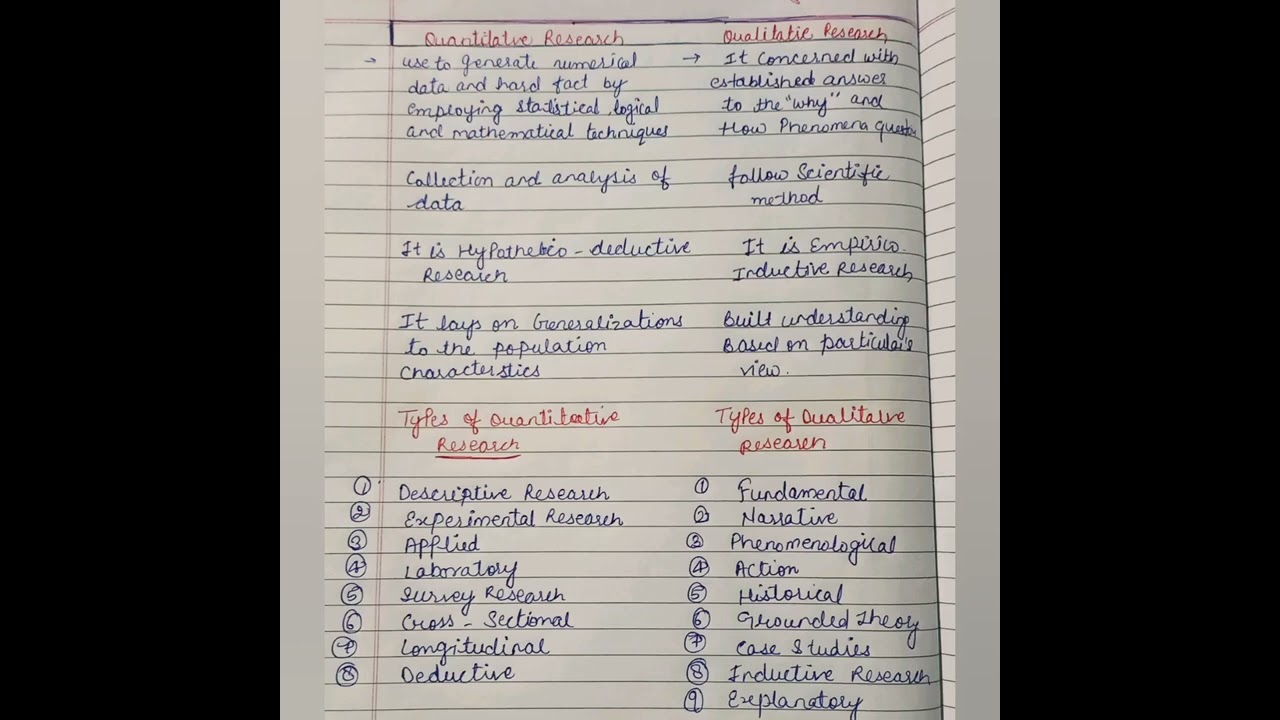 Quantitatve Research
use to generate numerical
data and hard fact by
employing statistical, logical
and mathematical techniques
Collection and analysis of
data
It is Hypothetico - deductive
Research
It lays on Generalizations
to the population
Characterstics
Types of Quantitative
Research
① Descriptive Research
② Experimental Research
③ Applied
④ Laboratory
⑤ Survey Research
⑥ Cross - Sectional
⑦ Longitudinal
⑧ Deductive
Qualitatie Research
→ It Concerned with
established answer
to the "why" and
How Phenomena question
follow Scientific
method
It is Empirico
Inductive Research
Built understanding
Based on particular's
view.
Types of Qualitatve
Research
① Fundamental
② Narrative
③ Phenomenological
④ Action
⑤ Historical
⑥ Grounded Theory
⑦ Case Studies
⑧ Inductive Research
⑨ Explanatory